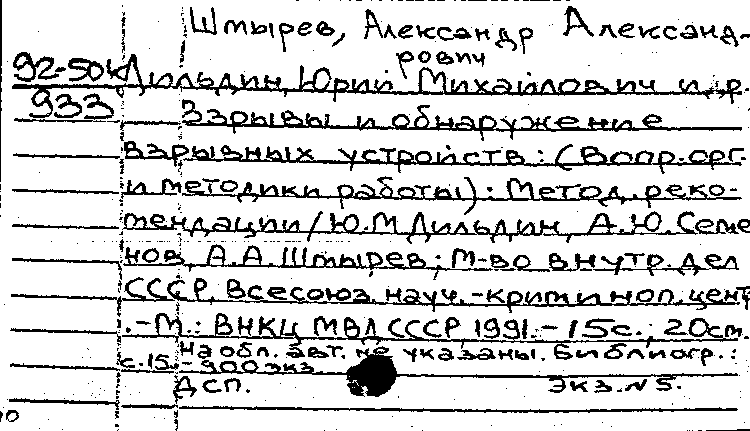 Штырев, Александр Александ-
рович
92-50к Дильдин, Юрий Михайлович и др.
933 Взрывы и обнаружение
взрывных устройств: (Вопр. орг.
и методики работы): Метод. реко-
мендации/Ю.М Дильдин, А.Ю. Семе
нов, А.А. Штырев; М-во внутр. дел
СССР, Всесоюз. науч.-криминол. центр
.-М.: ВНКЦ МВД СССР, 1991.-15с.; 20см.
На обл. авт. не указаны. Библиогр.:
с.15.-900 экз
ДСП. Экз.N5.